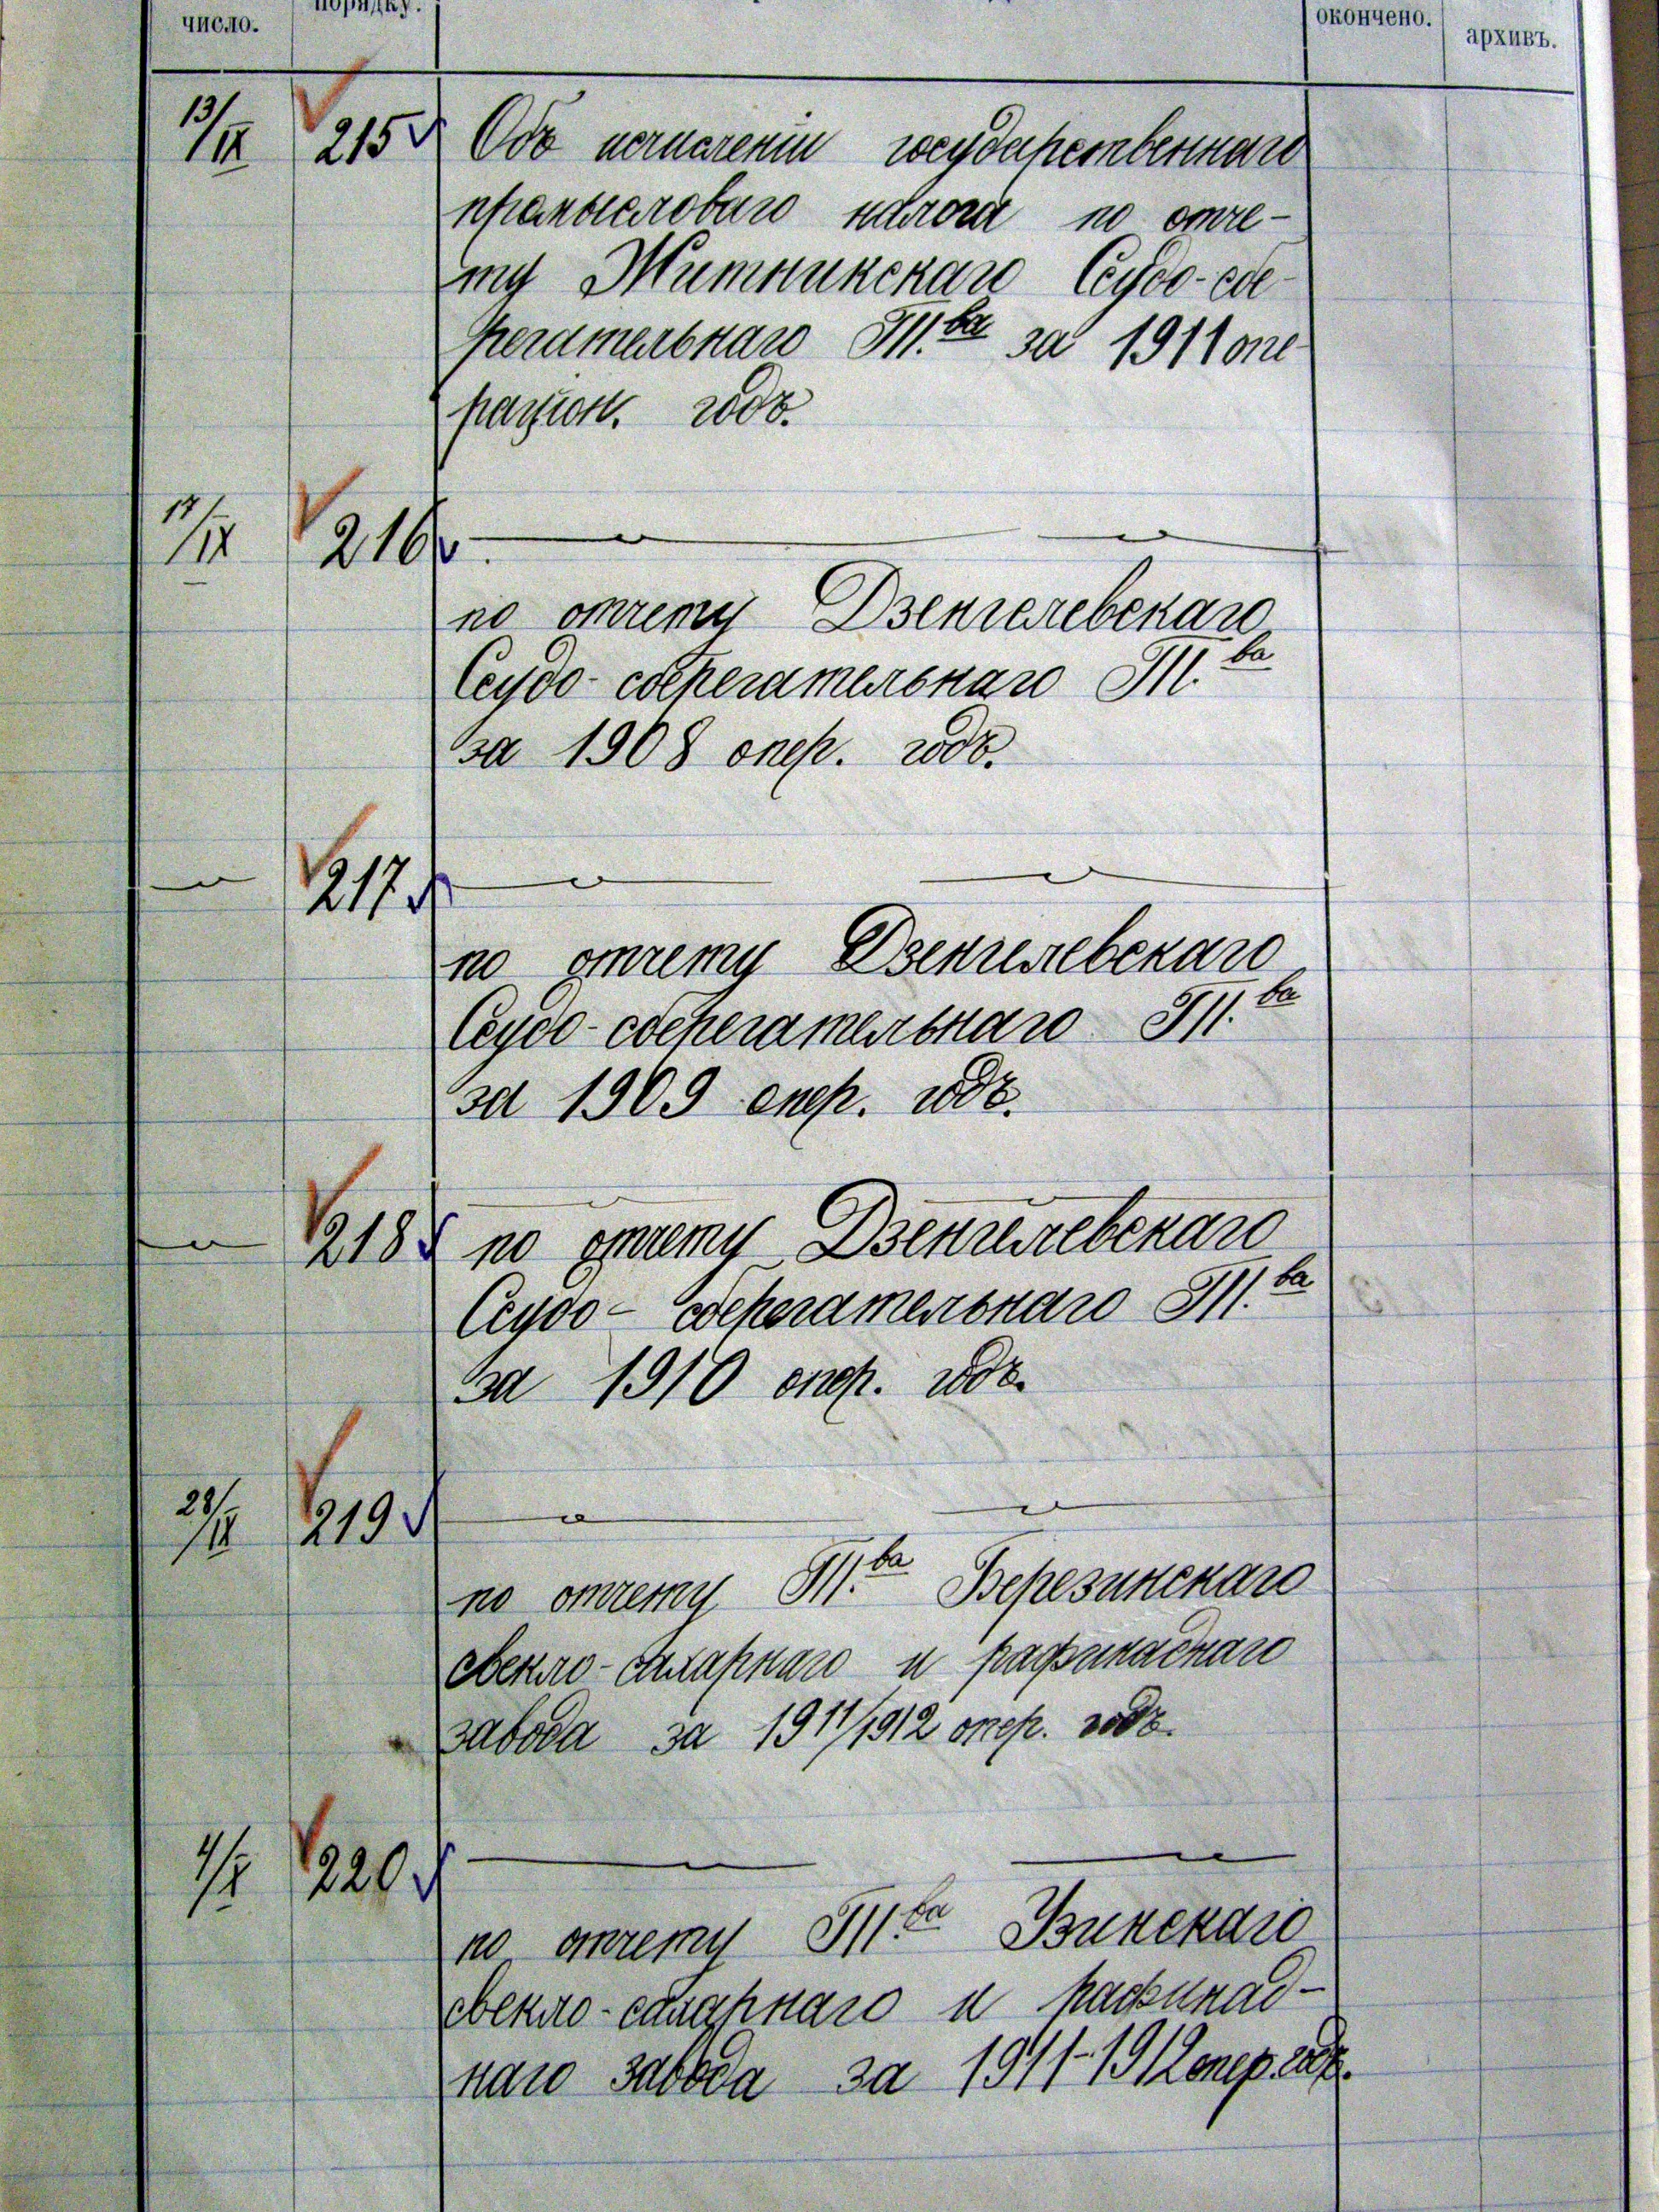 число.
порядку.
окончено.
архивъ.
13/IX 215 Объ исчисленіи государственнаго
промысловаго налога по отче-
ту Житникскаго Ссудо-сбе-
регательнаго Т.ва за 1911 опе-
раціон. годъ.
17/IX 216
по отчету Дзенгелевскаго
Ссудо-сберегательнаго Т.ва
за 1908 опер. годъ.
217
по отчету Дзенгелевскаго
Ссудо-сберегательнаго Т.ва
за 1909 опер. годъ.
218 по отчету Дзенгелевскаго
Ссудо-сберегательнаго Т.ва
за 1910 опер. годъ.
28/IX 219
по отчету Т.ва Березинскаго
свекло-сахарнаго и рафинаднаго
завода за 1911/1912 опер. годъ.
4/X 220
по отчету Т.ва Узинскаго
свекло-сахарнаго и рафинад-
наго завода за 1911-1912 опер. годъ.